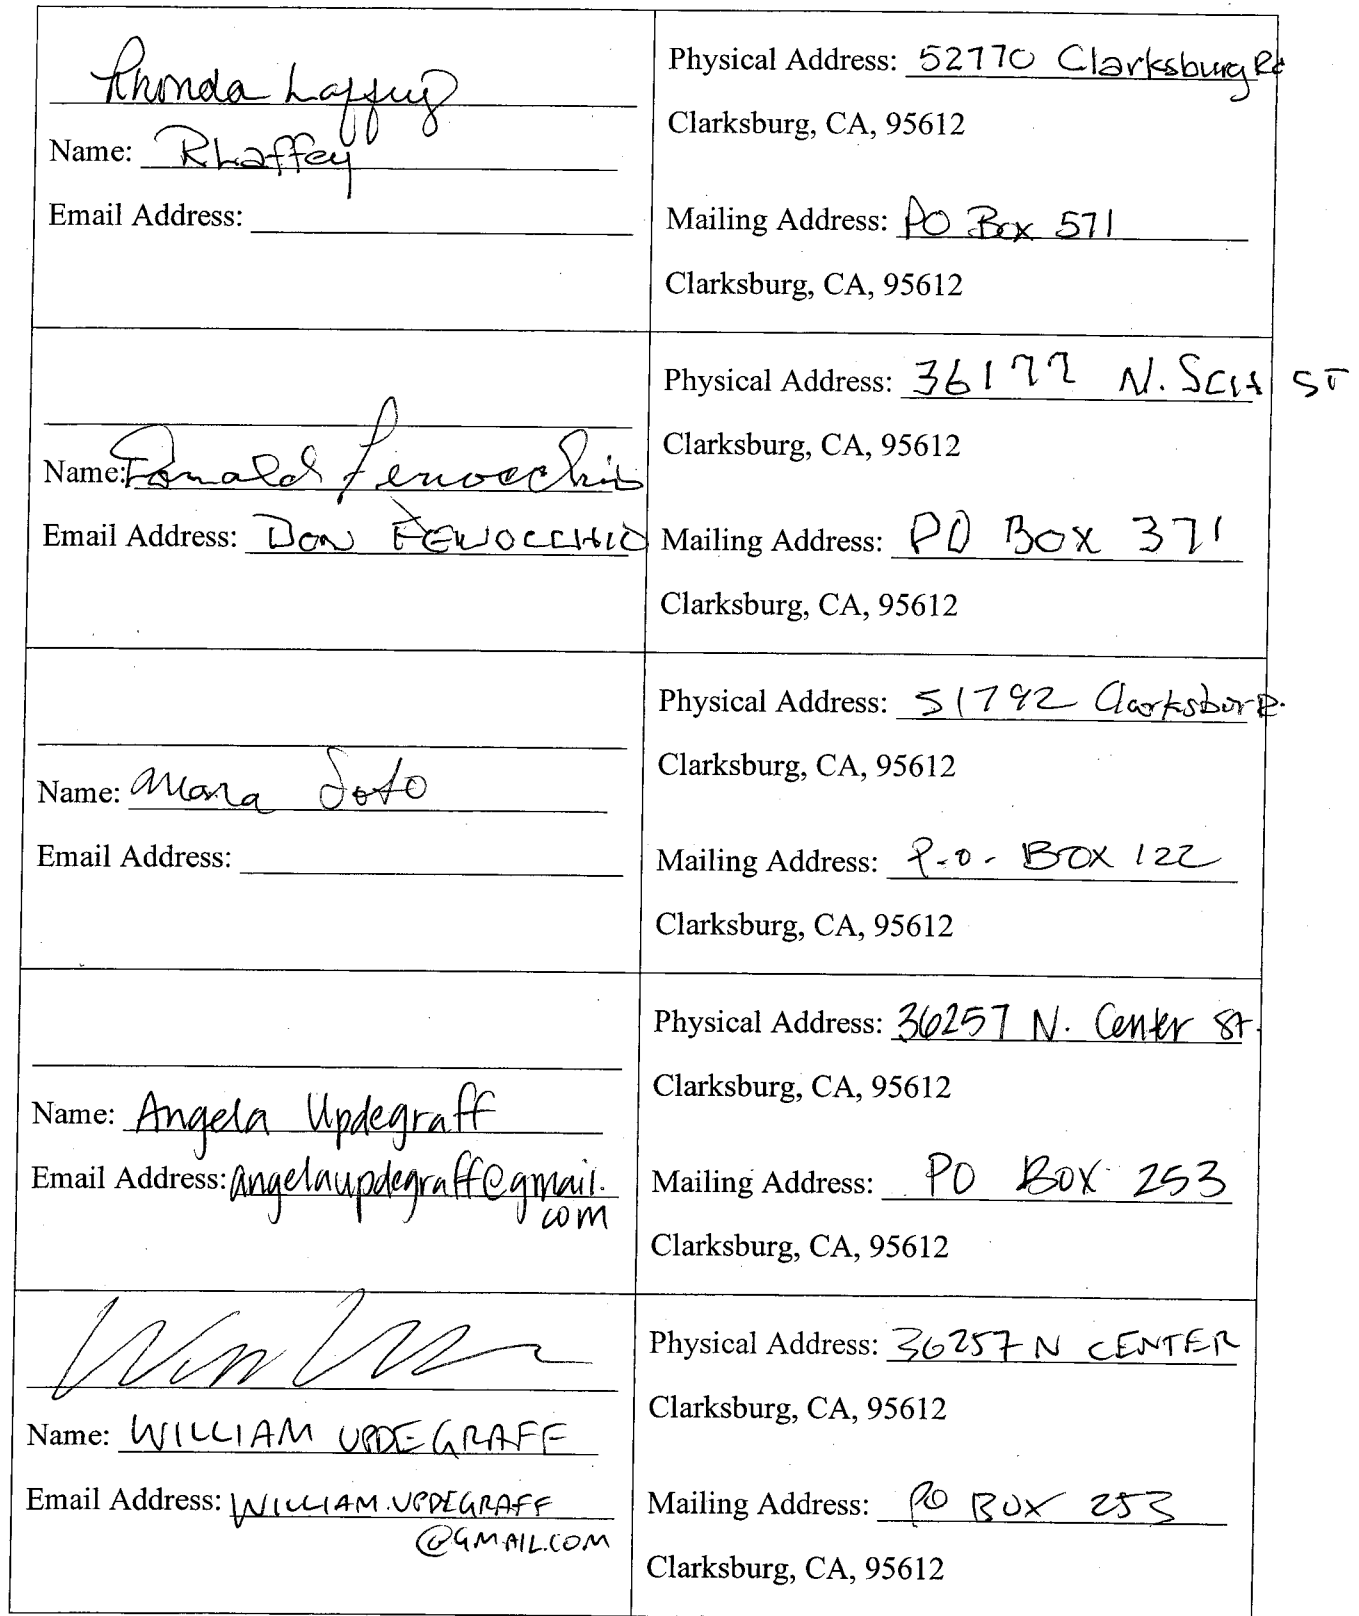 Rhonda Laffey
Name: RLaffey
Email Address:
Physical Address: 52770 Clarksburg Rd
Clarksburg, CA, 95612
Mailing Address: PO Box 571
Clarksburg, CA, 95612
Name: Donald Fenocchio
Email Address: DON FENOCCHIO
Physical Address: 36177 N. ST
Clarksburg, CA, 95612
Mailing Address: PO BOX 371
Clarksburg, CA, 95612
Name: Soto
Email Address:
Physical Address: 51792 R.
Clarksburg, CA, 95612
Mailing Address: P.O. BOX 122
Clarksburg, CA, 95612
Name: Angela Updegraff
Email Address: angelaupdegraff@gmail.
com
Physical Address: 36257 N. Center St.
Clarksburg, CA, 95612
Mailing Address: PO BOX 253
Clarksburg, CA, 95612
Name: WILLIAM UPDEGRAFF
Email Address: WILLIAM.UPDEGRAFF
@GMAIL.COM
Physical Address: 36257 N CENTER
Clarksburg, CA, 95612
Mailing Address: PO BOX 253
Clarksburg, CA, 95612